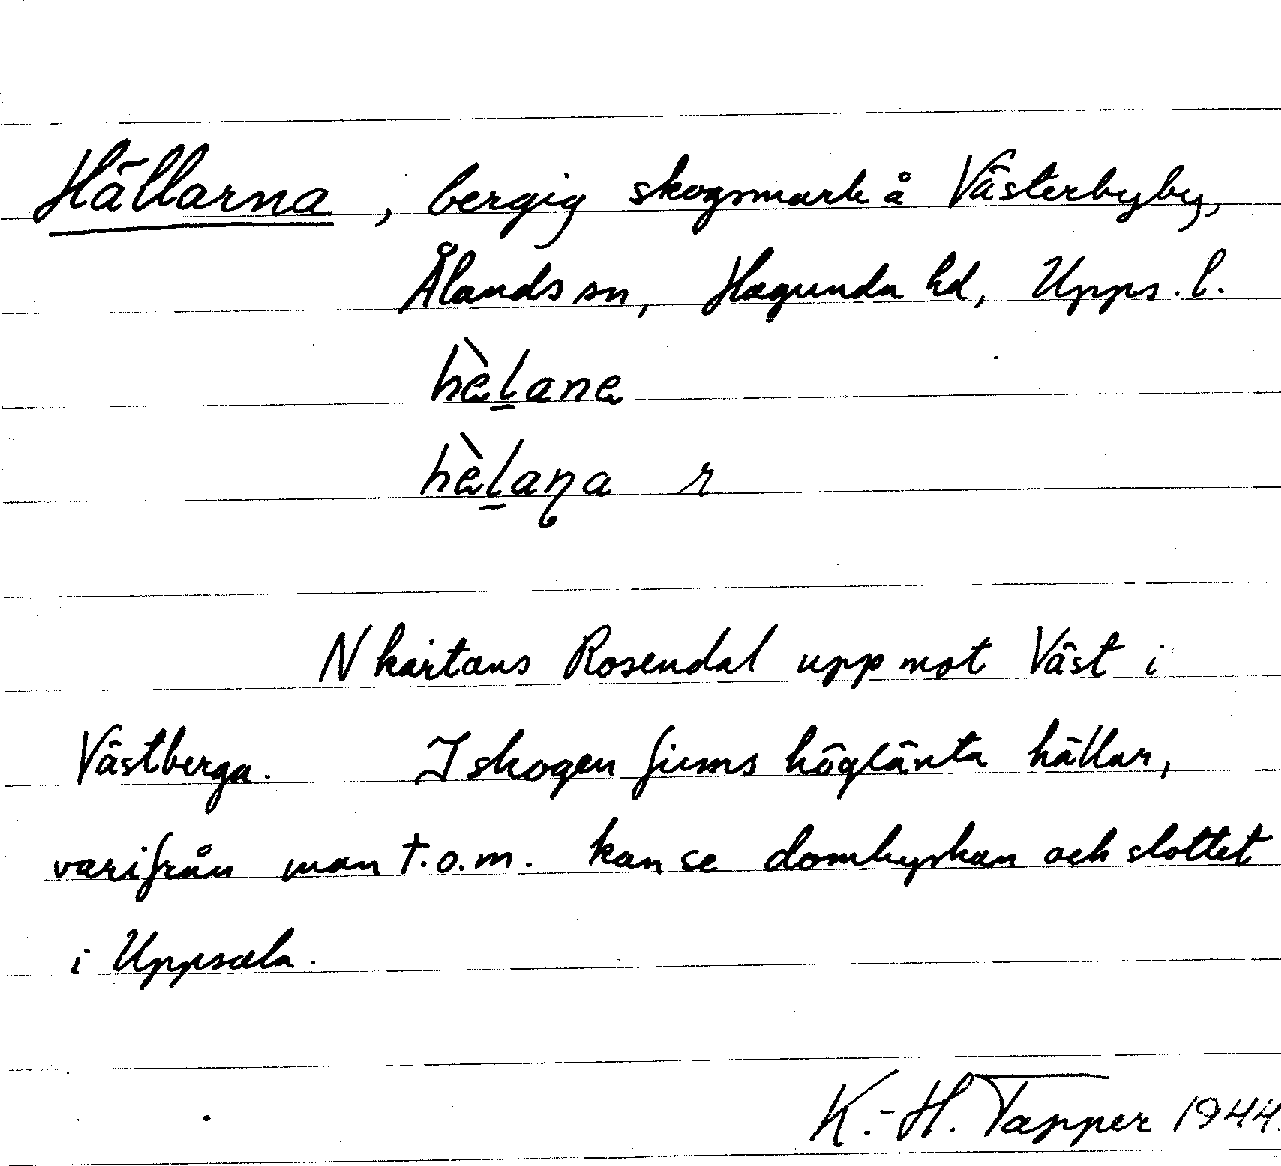 Hällarna, bergig skogsmark å Västerbyby,
Ålands sn, Hagunda hd, Upps. l.
hèl̲ane
hèl̲aɳa r
N kartans Rosendal upp mot Väst i
Västberga. I skogen finns höglänta hällar,
varifrån man t.o.m. kan se domkyrkan och slottet
i Uppsala.
K.-H. Tapper 1944.